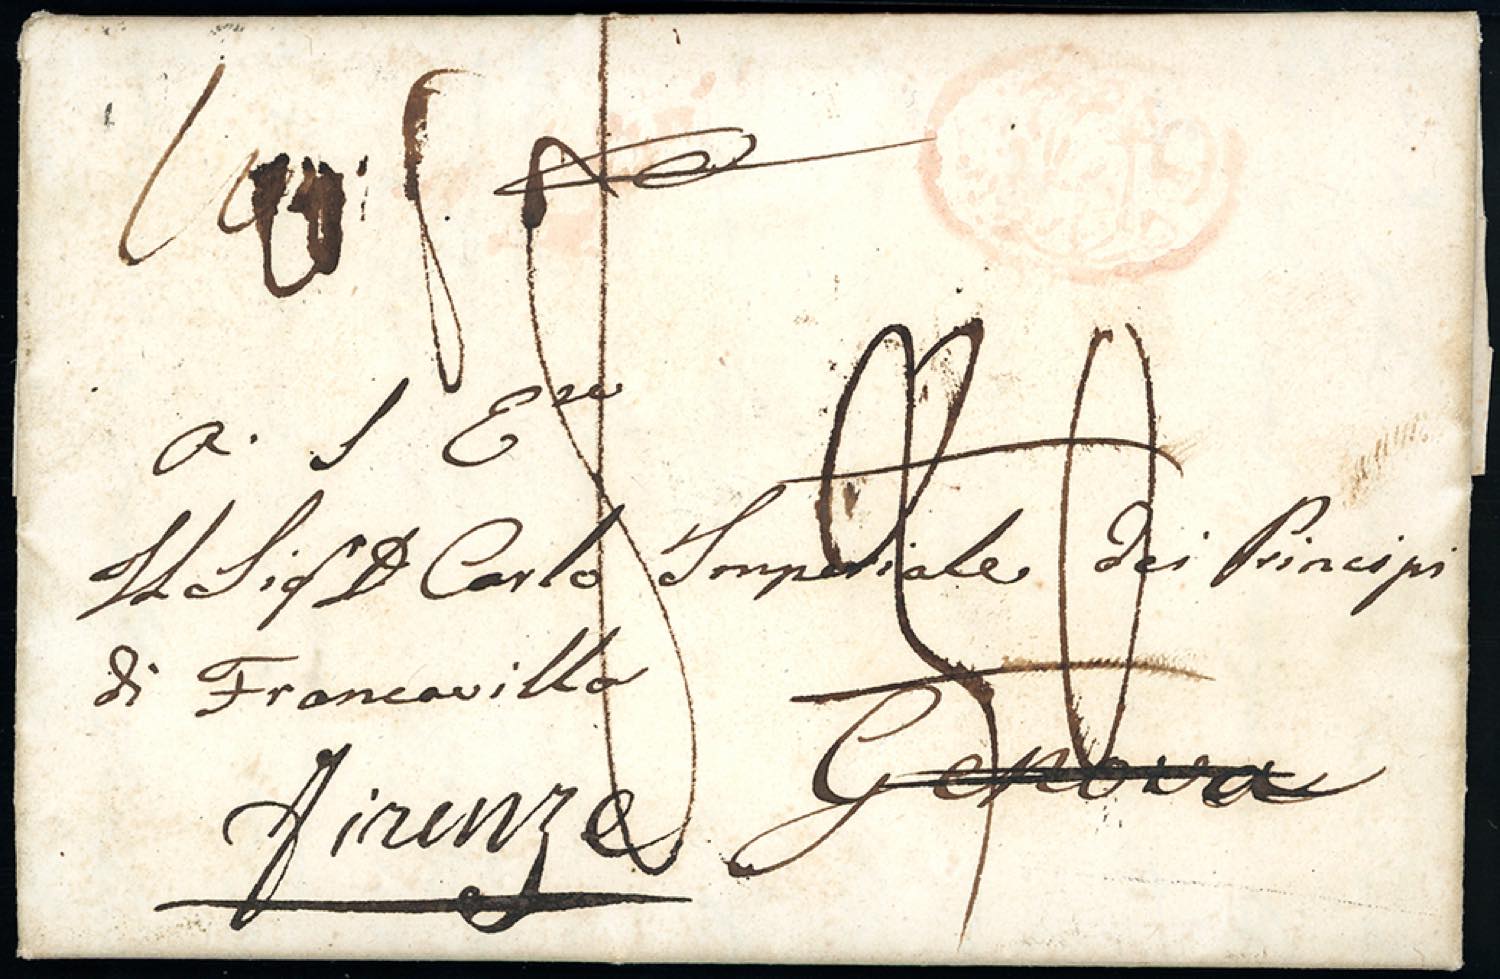 a. S Eza
Il Sigr D Carlo Imperiale dei Principi
di Francavilla
Genova
Firenze